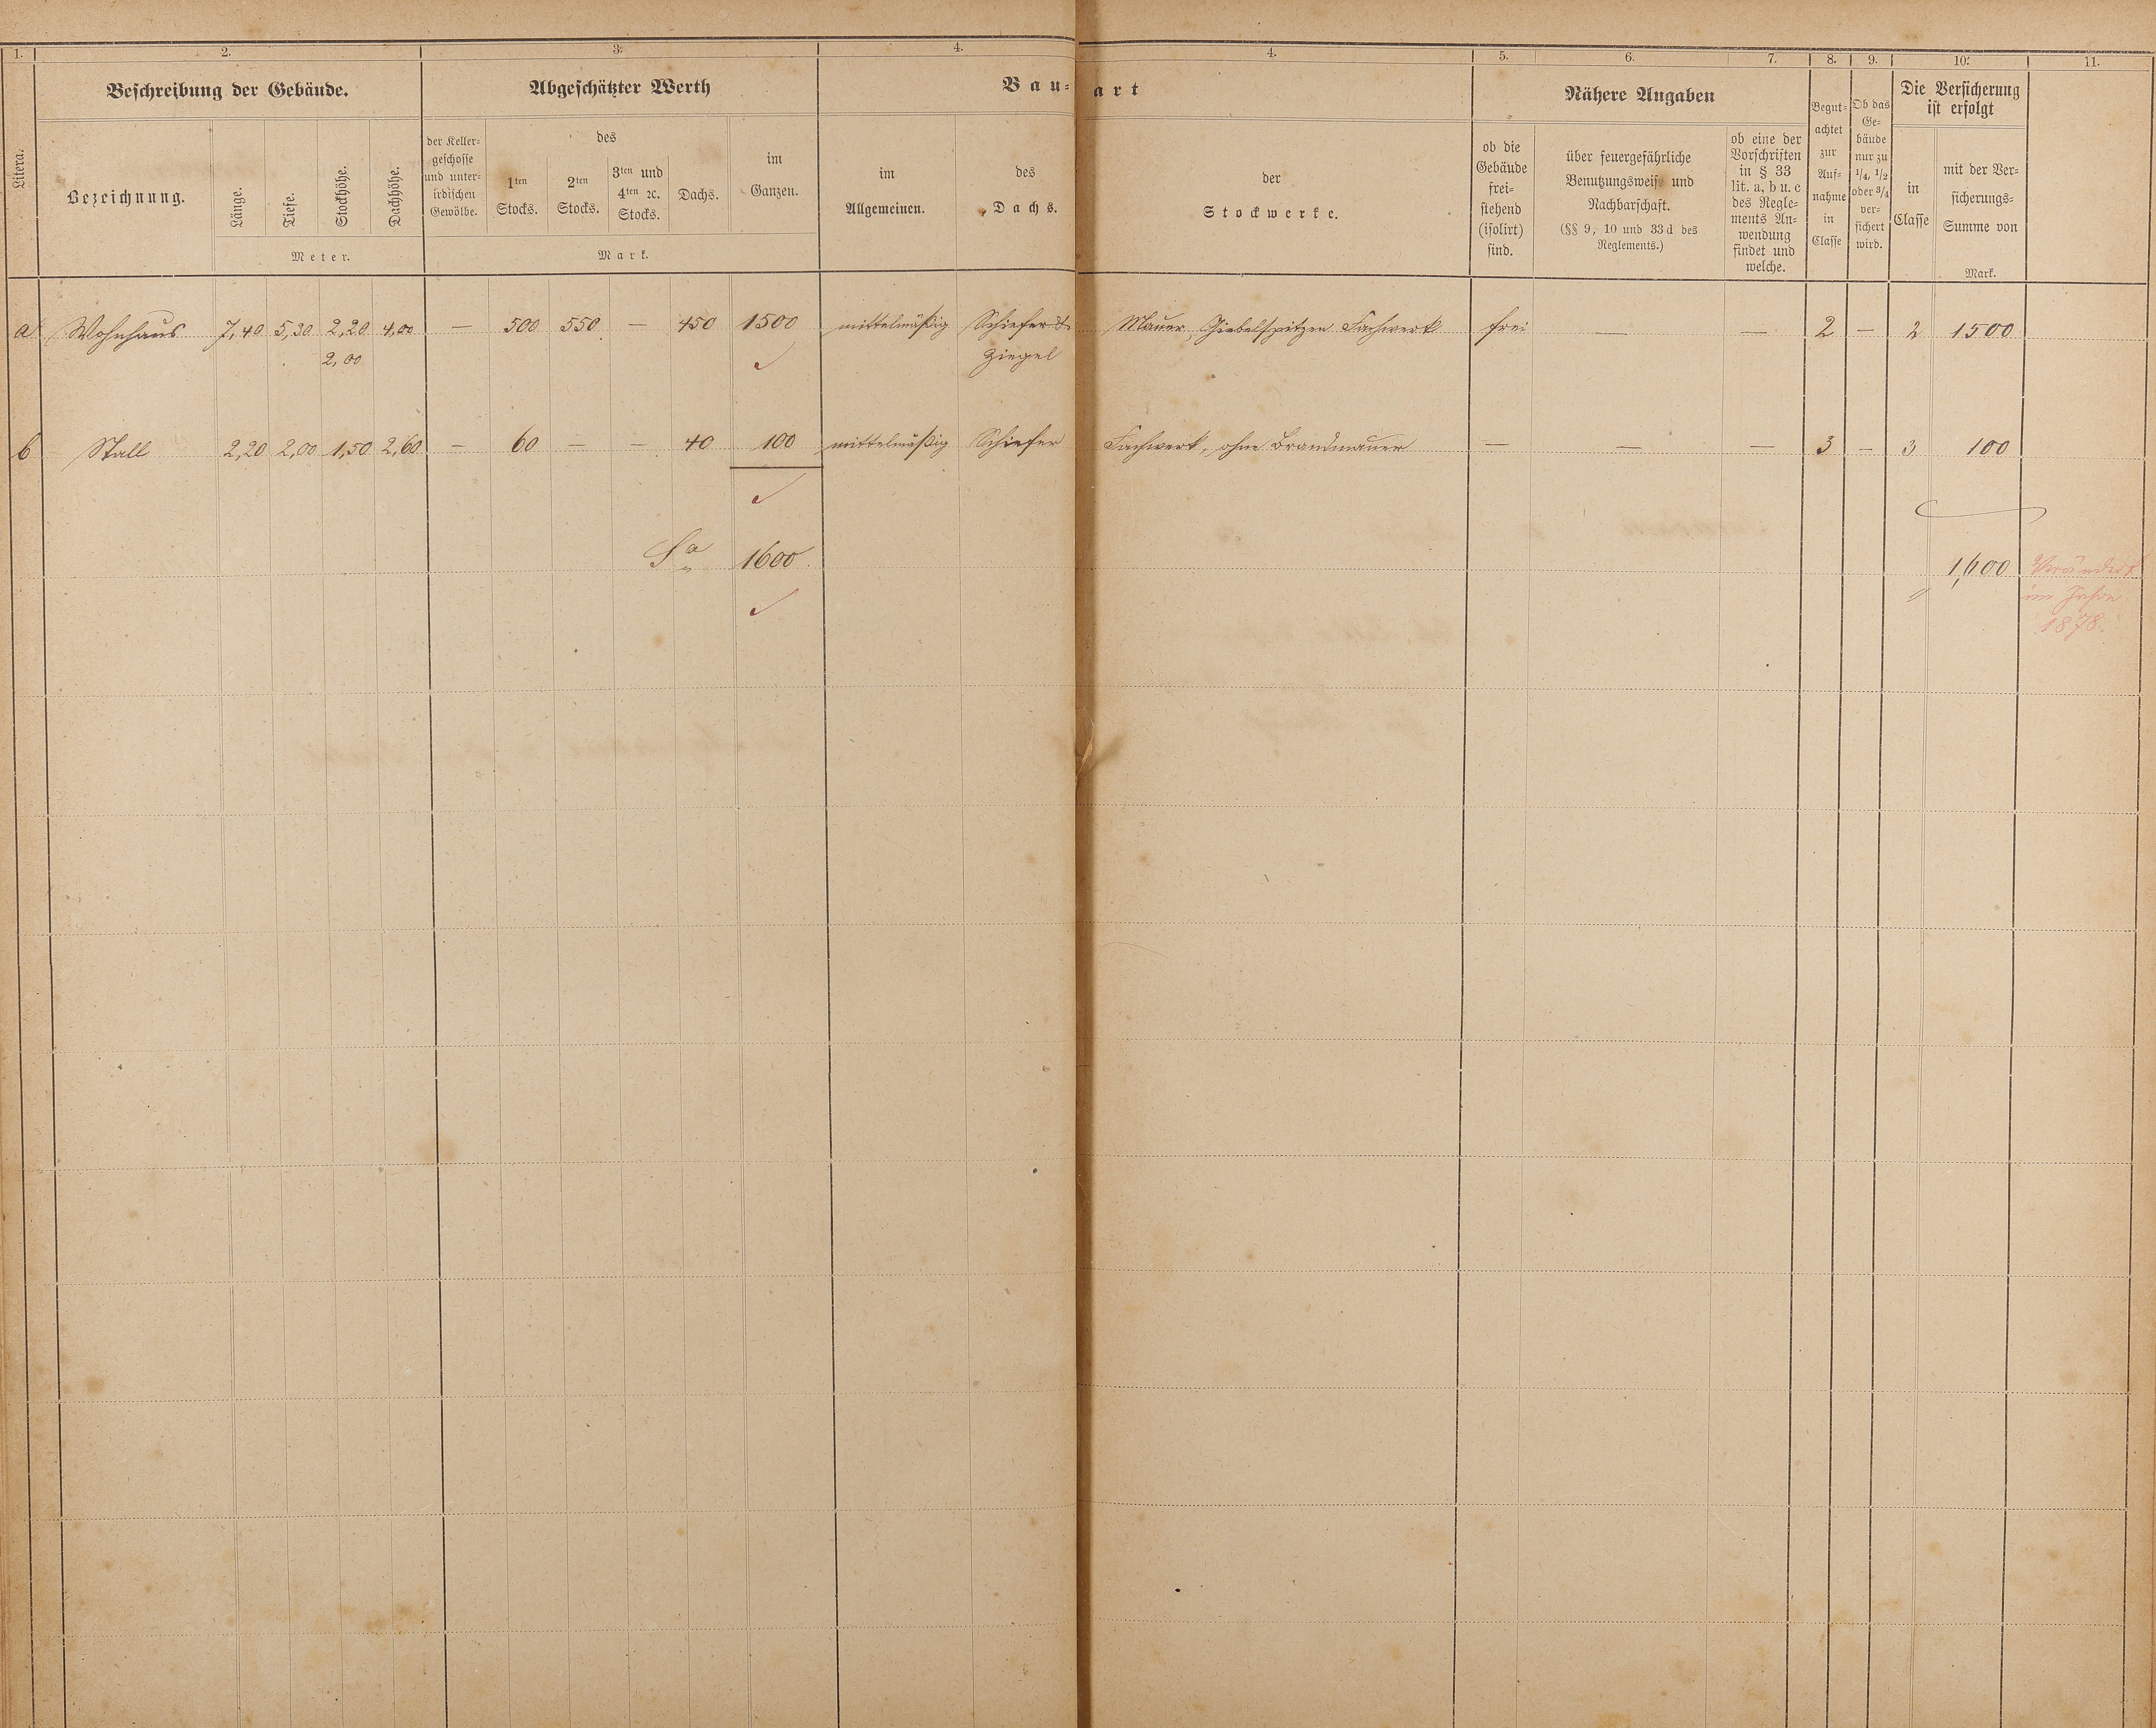 1. 2. 3. 4. 4. 5. 6. 7. 8. 9. 10. 11.
Litera.
Beschreibung der Gebäude.
Bezeichnung.
Länge.
Tiefe.
Stockhöhe.
Dachhöhe.
Meter.
Abgeschätzter Werth
der Keller-
geschosse
und unter-
irdischen
Gewölbe.
des
1ten
Stocks.
2ten
Stocks.
3ten und
4ten ꝛc.
Stocks.
Dachs.
im
Ganzen.
Mark.
Bau-art
im
Allgemeinen.
des
Dachs.
der
Stockwerke.
Nähere Angaben
ob die
Gebäude
frei-
stehend
(isolirt)
sind.
über feuergefährliche
Benutzungsweise und
Nachbarschaft.
(§§ 9, 10 und 33 d des
Reglements.)
ob eine der
Vorschriften
in § 33
lit. a, b u. c
des Regle-
ments An-
wendung
findet und
welche.
Begut-
achtet
zur
Auf-
nahme
in
Classe
Ob das
Ge-
bäude
nur zu
1/4, 1/2
oder 3/4
ver-
sichert
wird.
Die Versicherung
ist erfolgt
in
Classe
mit der Ver-
sicherungs-
Summe von
Mark.
a Wohnhaus 7,40 5,30 2,20 4,00 — 500 550 — 450 1500 mittelmäßig Schiefer & Mauer, Giebelspitzen Fachwerk frei — — 2 — 2 1500
2,00 Ziegel
b Stall 2,20 2,00 1,50 2,60 — 60 — — 40 100 mittelmäßig Schiefer Fachwerk, ohne Brandmauer — — — 3 — 3 100
Sa 1600 1,600 Verändert
im Jahre
1878.